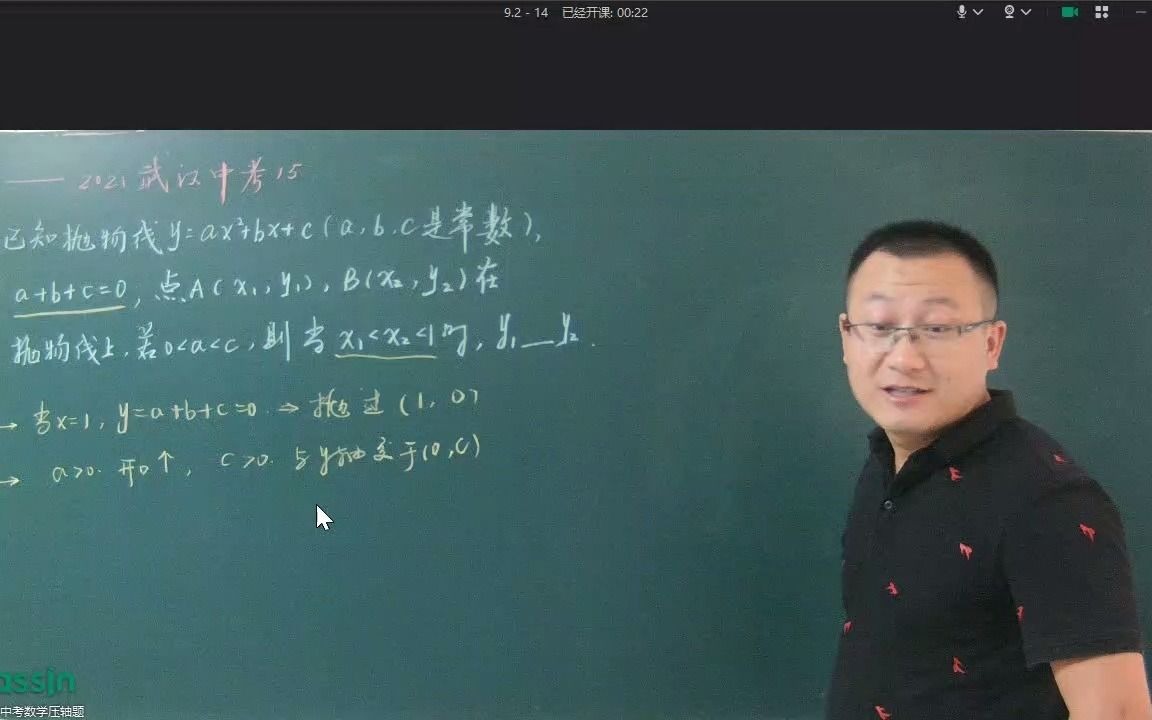 9.2 - 14 已经开课: 00:22
—— 2021 武汉中考 15
已知抛物线 y=ax²+bx+c (a,b,c是常数),
a+b+c=0, 点A(x₁,y₁), B(x₂,y₂)在
抛物线上, 若0<a<c, 则当 x₁<x₂<1时, y₁__y₂.
→ 当x=1, y=a+b+c=0. ⇒ 抛过(1,0)
→ a>0. 开口↑, c>0. 与y轴交于(0,c)
assin
中考数学压轴题